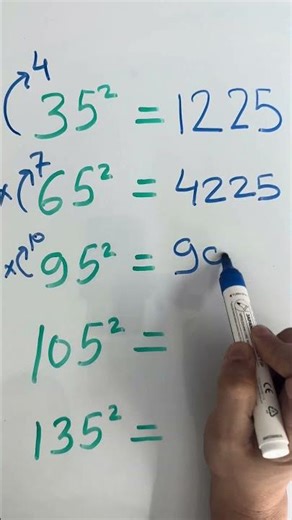 4
35² = 1225
7
×65² = 4225
10
×95² = 90
105² =
135² =